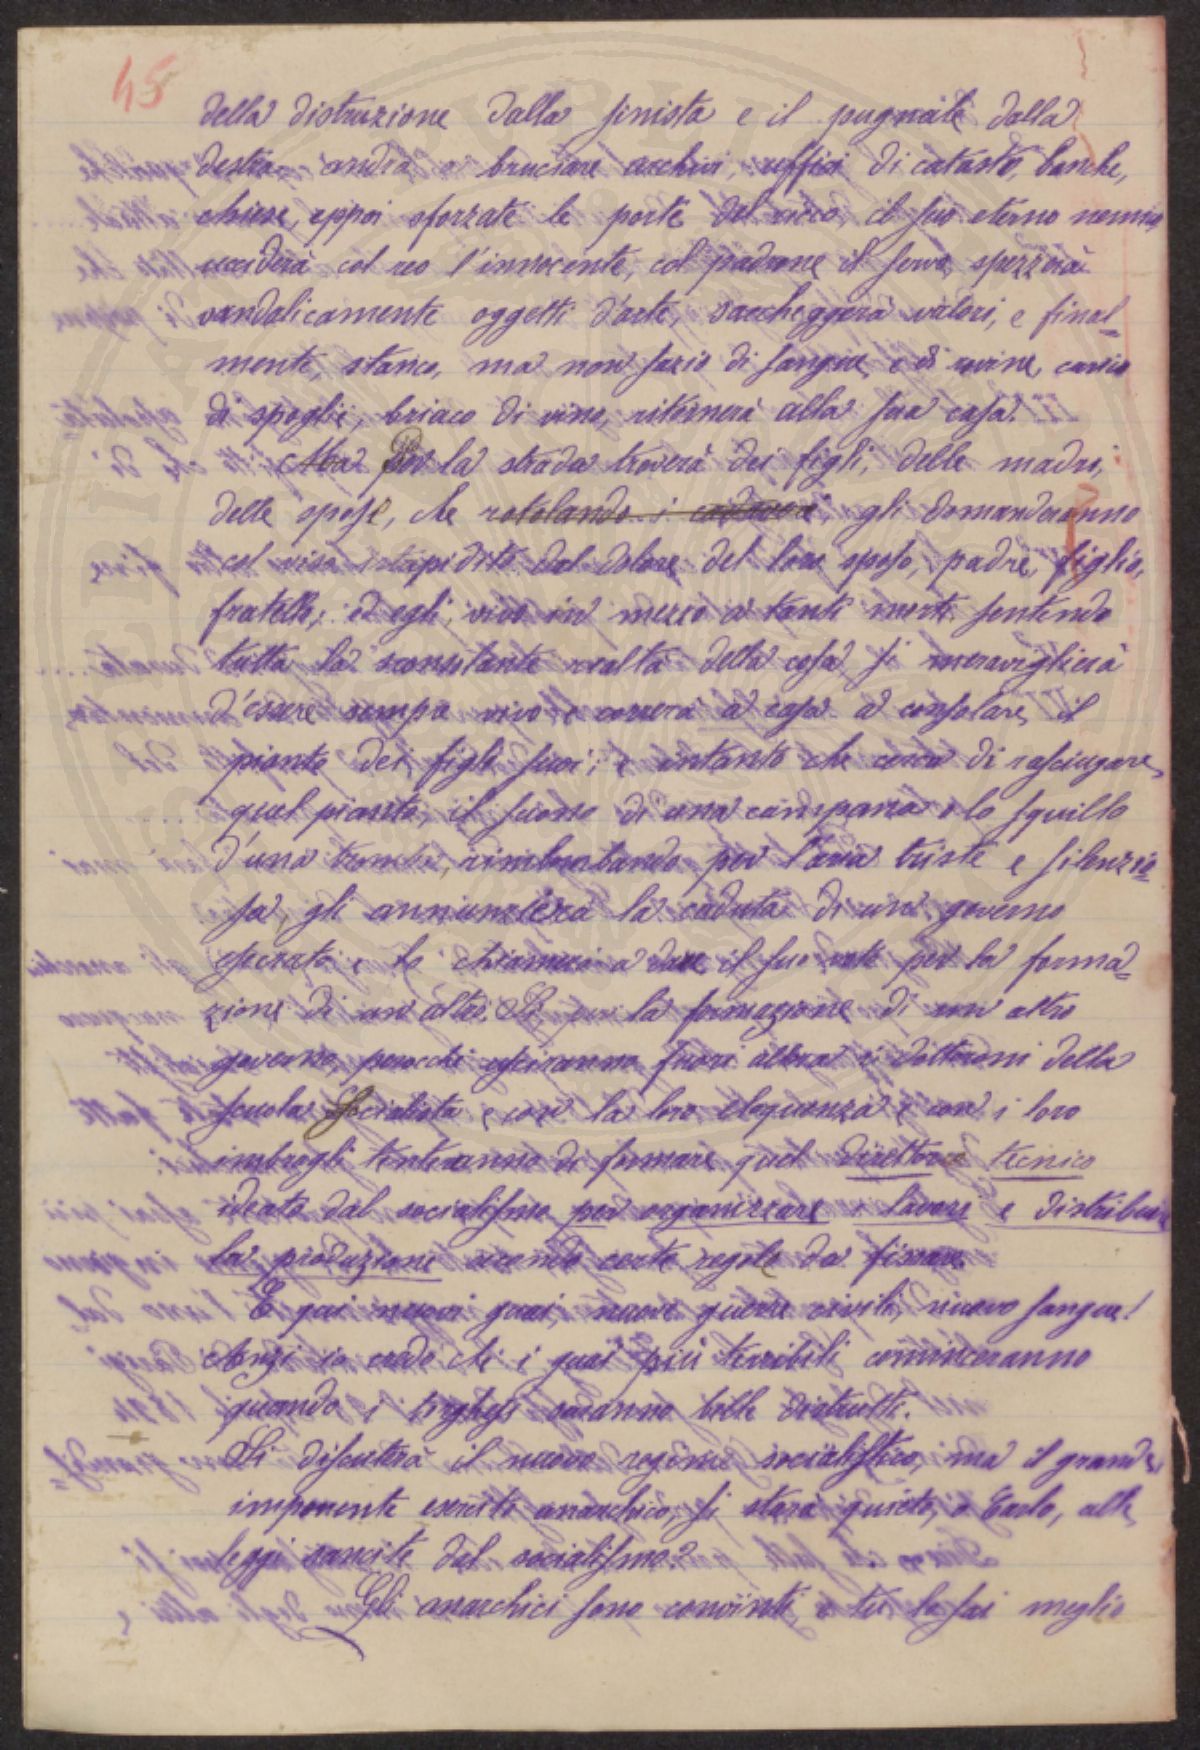 45
della distruzione dalla sinista e il pugnale dalla
destra andrà a bruciare archivi, uffici di catasto, banche,
chiese, eppoi sforzate le porte del ricco, il suo eterno nemico
ucciderà col reo l'innocente, col padrone il servo, spezzerà
vandalicamente oggetti d'arte, saccheggierà valori, e final=
mente, stanco, ma non sazio di sangue, e di rovine, carico
di spoglie, briaco di vino, ritornerà alla sua casa.
Ma per la strada troverà dei figli, delle madri,
delle spose, che rotolando i cadaveri, gli domanderanno
col viso istupidito dal dolore del loro sposo, padre, figlio,
fratello; ed egli, vivo in mezzo a tanti morti sentendo
tutta la sconsitante realtà della cosa si meraviglierà
d'essere sempre vivo e correrà a casa a consolare, il
pianto dei figli suoi; e intanto che cerca di rasciugare,
quel pianto, il suono di una campana o lo squillo
d'una tromba, rimbombando per l'aria triste e silenzio=
sa, gli annunzierà la caduta di un governo
esecrato e lo chiamerà a dare il suo voto per la forma=
zione di un altro. Sì, per la formazione di un altro
governo, perocchè esciranno fuori allora i dottoroni della
scuola Socialista e con la loro eloquenza e con i loro
imbrogli tenteranno di formare quel direttorio tecnico
ideato dal socialismo per organizzare i lavori e distribuire
la produzione secondo certe regole da fissare.
E qui nuovi guai, nuove guerre civili, nuovo sangue!
Anzi io credo che i guai più terribili cominceranno
quando i borghesi saranno belle distrutti.
Si discuterà il nuovo regime socialistico, ma il grande,
imponente esercito anarchico, si starà quieto, o Carlo, alle
leggi sancite dal socialismo?
Gli anarchici sono convinti e tu lo sai meglio